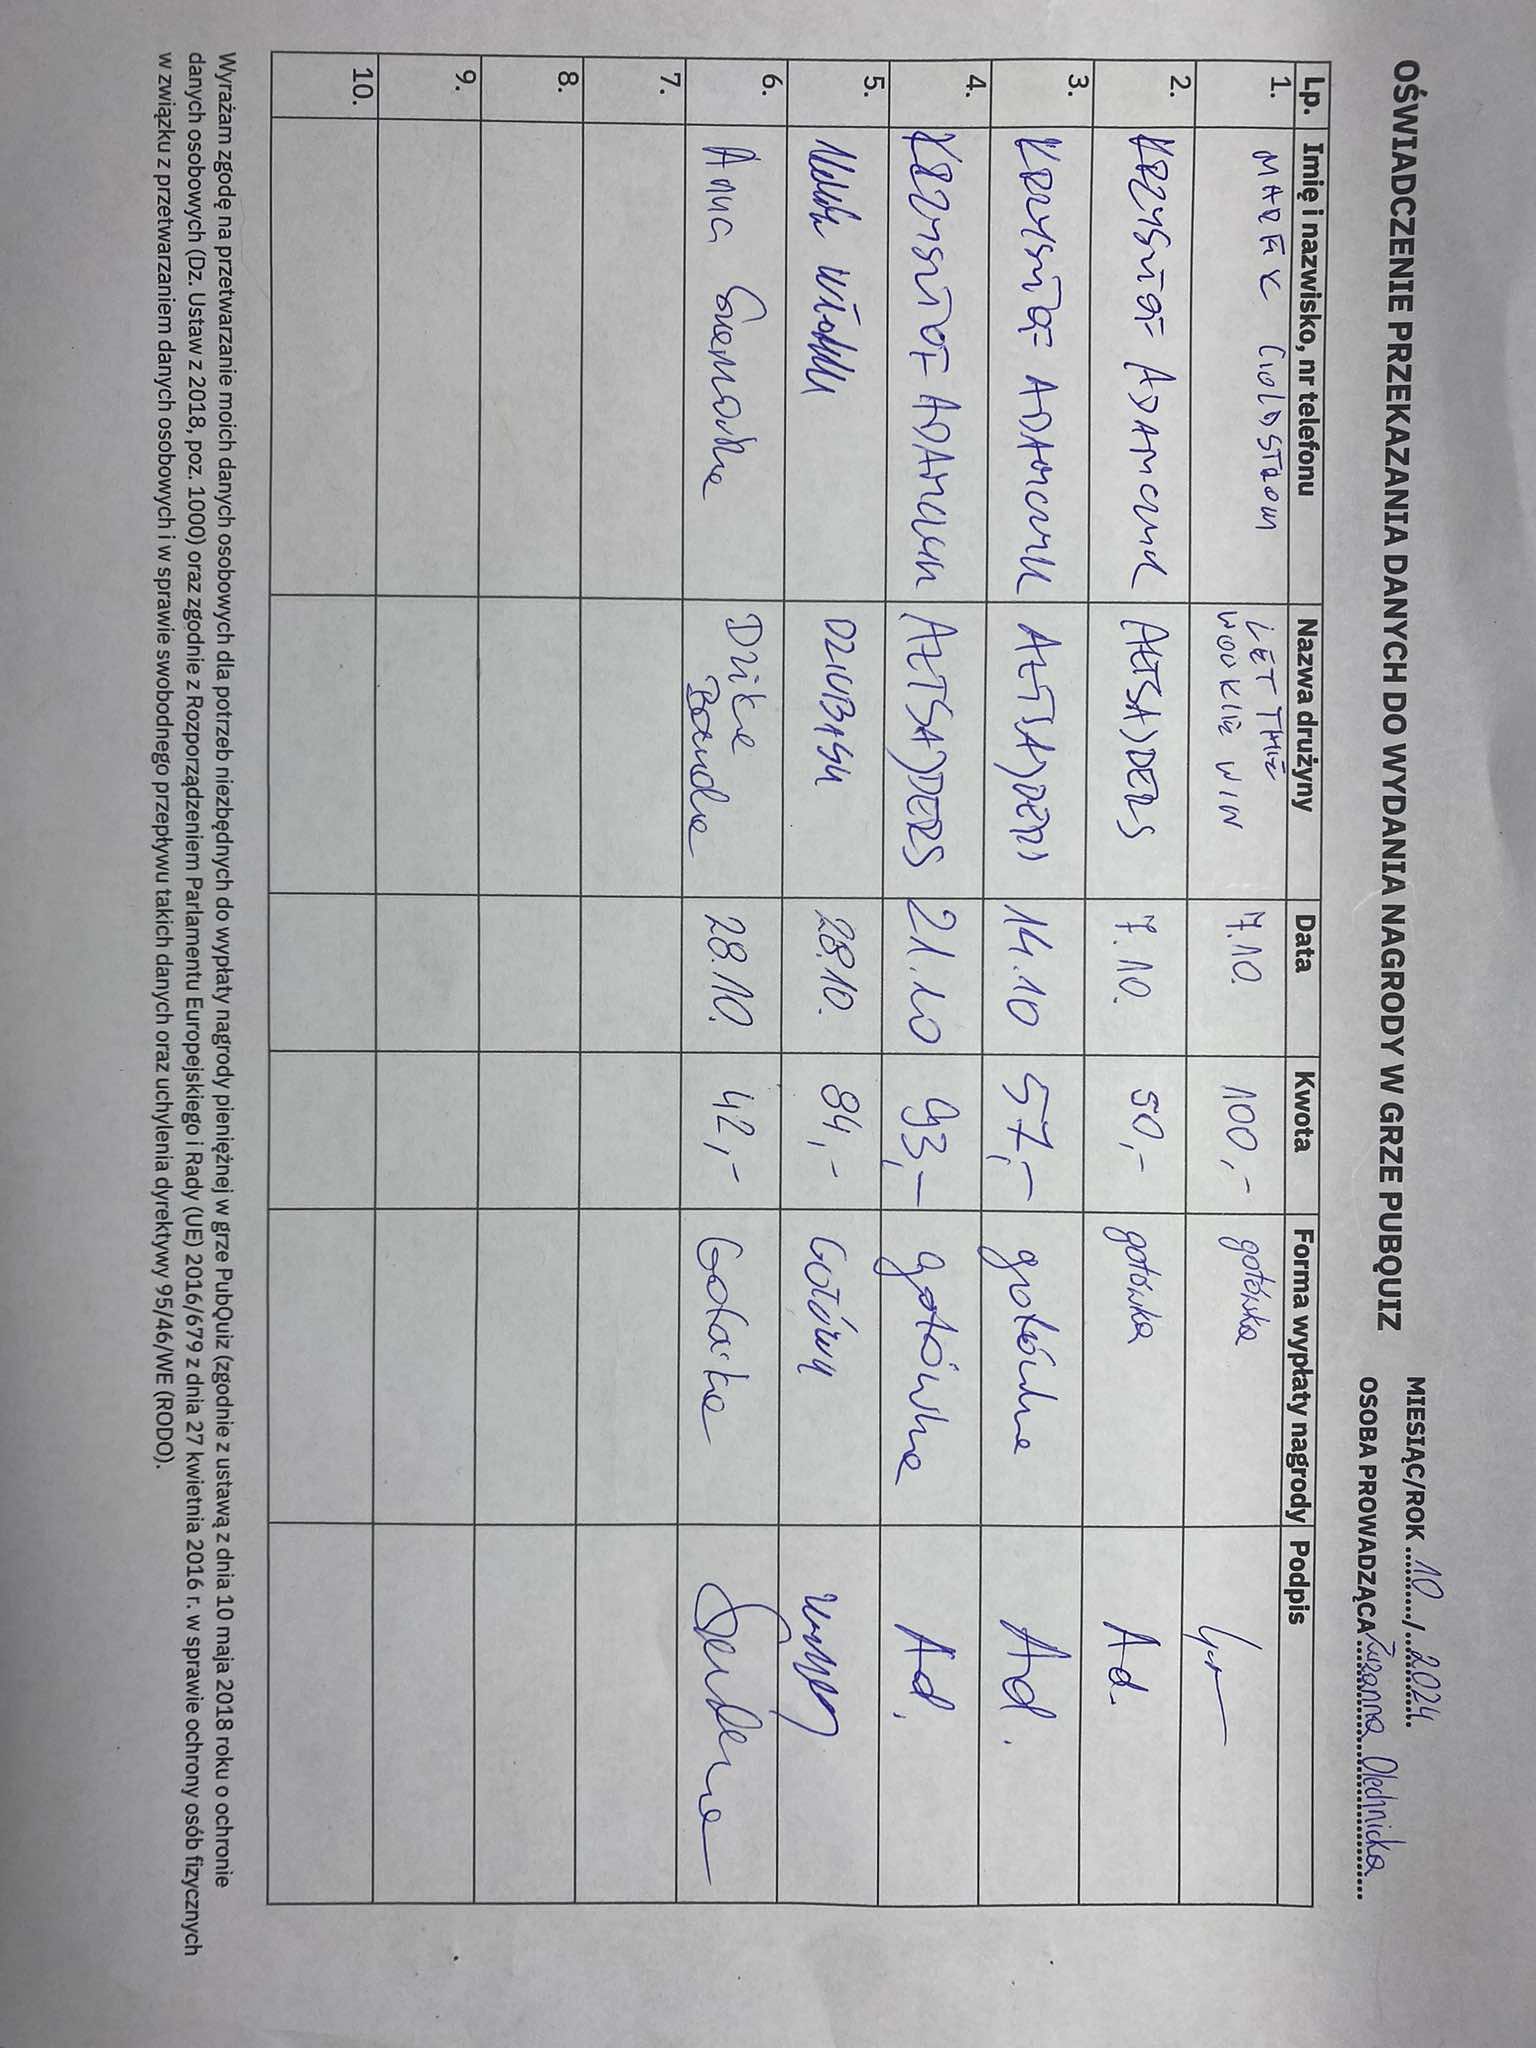 OŚWIADCZENIE PRZEKAZANIA DANYCH DO WYDANIA NAGRODY W GRZE PUBQUIZ
MIESIĄC/ROK 10 / 2024
OSOBA PROWADZĄCA Zuzanna Olechnicka
Lp. Imię i nazwisko, nr telefonu Nazwa drużyny Data Kwota Forma wypłaty nagrody Podpis
1. MAREK GOLDSTROM LET THE WOOKIE WIN 7.10. 100,- gotówka
2. KRZYSZTOF ADAMCZYK 7.10. 50,- gotówka Ad.
3. KRZYSZTOF ADAMCZYK 14.10 57,- gotówka Ad.
4. KRZYSZTOF ADAMCZYK 21.10 93,- gotówka Ad.
5. DZIUBASY 28.10. 84,- GOTÓWKA
6. Anna Dzika Banda 28.10. 42,- Gotówka
7.
8.
9.
10.
Wyrażam zgodę na przetwarzanie moich danych osobowych dla potrzeb niezbędnych do wypłaty nagrody pieniężnej w grze PubQuiz (zgodnie z ustawą z dnia 10 maja 2018 roku o ochronie
danych osobowych (Dz. Ustaw z 2018, poz. 1000) oraz zgodnie z Rozporządzeniem Parlamentu Europejskiego i Rady (UE) 2016/679 z dnia 27 kwietnia 2016 r. w sprawie ochrony osób fizycznych
w związku z przetwarzaniem danych osobowych i w sprawie swobodnego przepływu takich danych oraz uchylenia dyrektywy 95/46/WE (RODO).